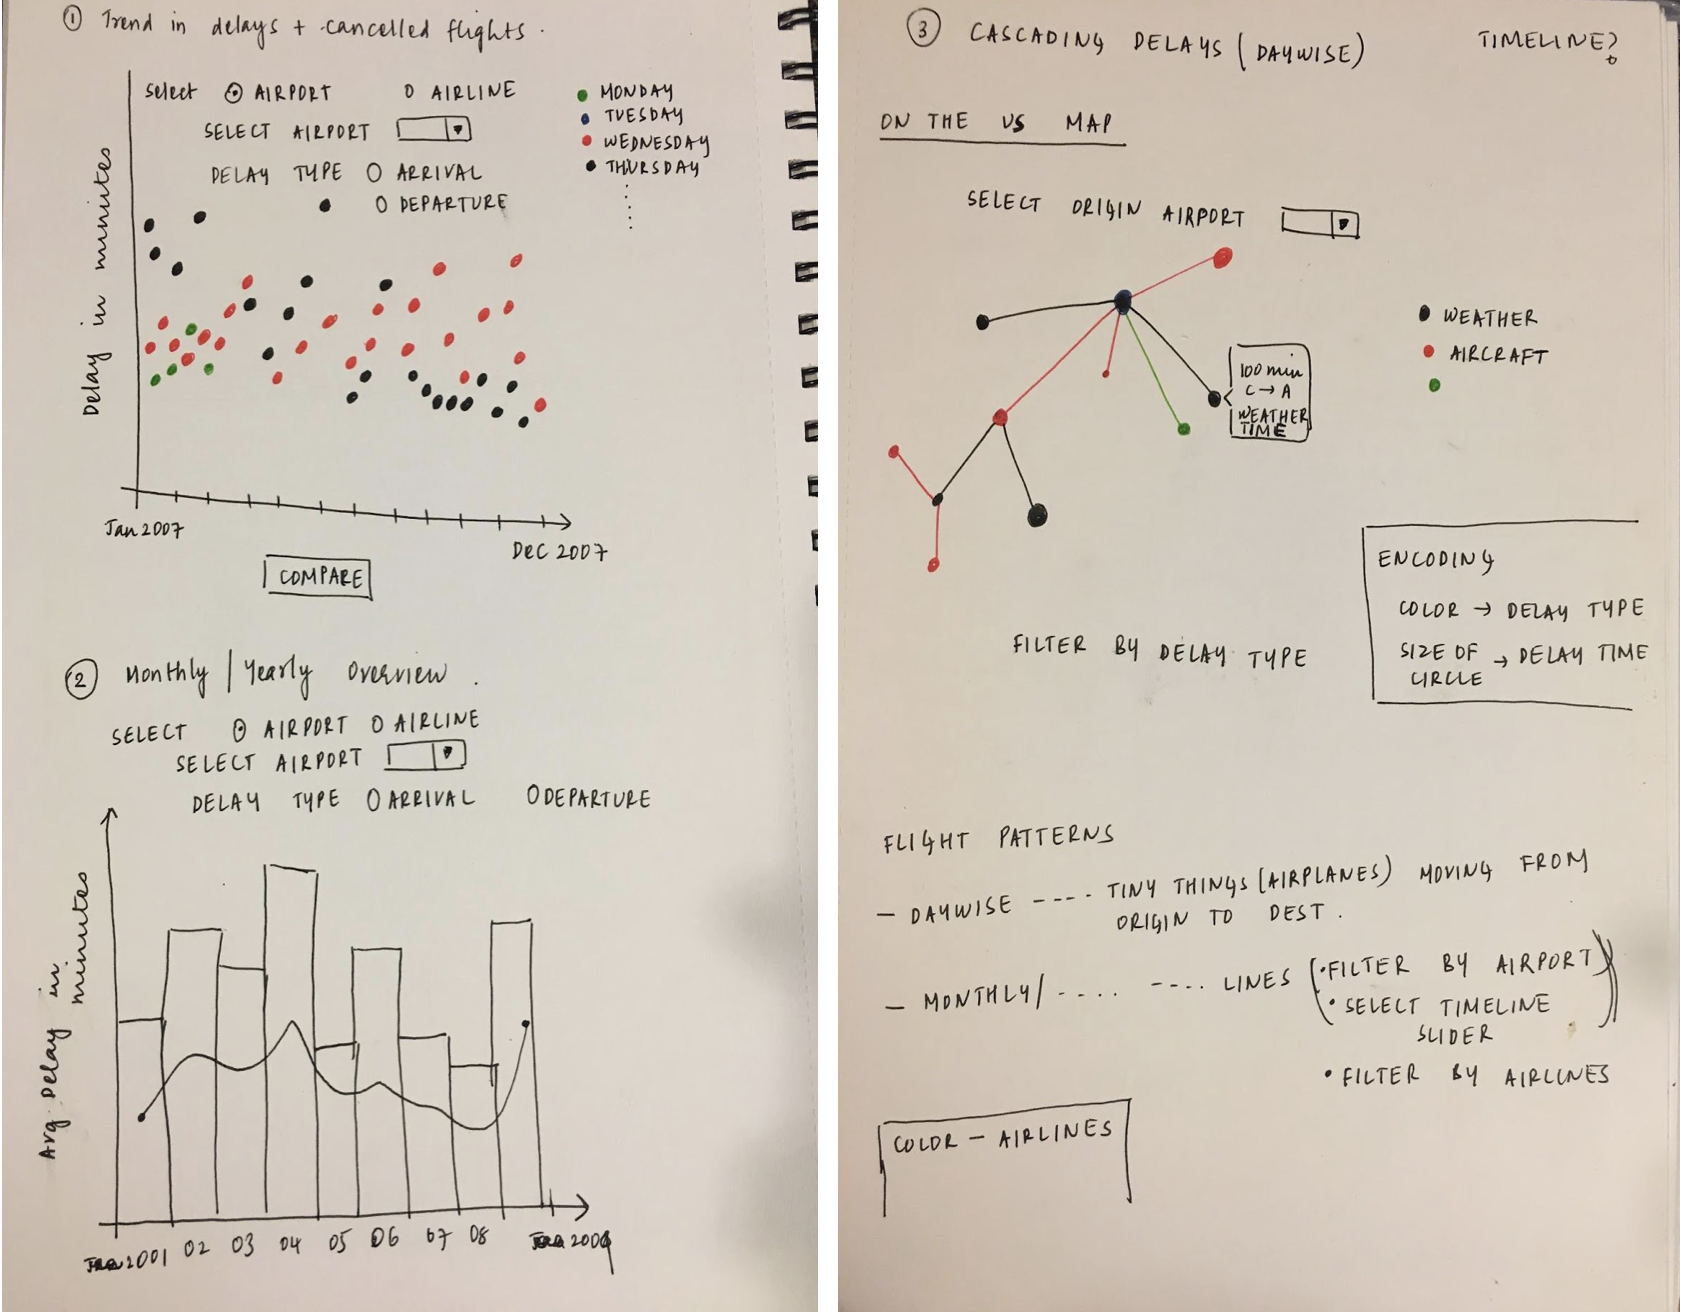 ① Trend in delays + cancelled flights.
Select AIRPORT AIRLINE
SELECT AIRPORT
DELAY TYPE ARRIVAL
DEPARTURE
MONDAY
TUESDAY
WEDNESDAY
THURSDAY
Delay in minutes
Jan 2007
Dec 2007
COMPARE
② Monthly / Yearly Overview.
SELECT AIRPORT AIRLINE
SELECT AIRPORT
DELAY TYPE ARRIVAL DEPARTURE
Avg. Delay in
minutes
2001 02 03 04 05 06 07 08
③ CASCADING DELAYS (DAYWISE) TIMELINE?
ON THE US MAP
SELECT ORIGIN AIRPORT
WEATHER
AIRCRAFT
100 min
C → A
WEATHER
TIME
ENCODING
COLOR → DELAY TYPE
SIZE OF → DELAY TIME
CIRCLE
FILTER BY DELAY TYPE
FLIGHT PATTERNS
– DAYWISE ---- TINY THINGS (AIRPLANES) MOVING FROM
ORIGIN TO DEST.
– MONTHLY/ - .... ---- LINES (• FILTER BY AIRPORT)
• SELECT TIMELINE
SLIDER
• FILTER BY AIRLINES
COLOR – AIRLINES